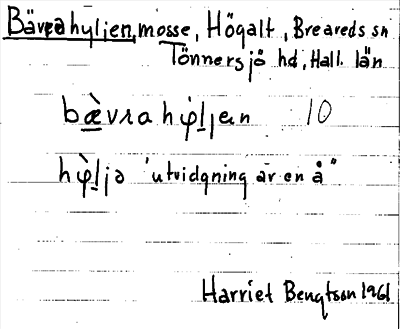 Bäverahyljen, mosse, Högalt, Breareds sn
Tönnersjö hd, Hall. län
bæ̀vrahỳljen 10
hỳljə "utvidgning av en å"
Harriet Bengtson 1961